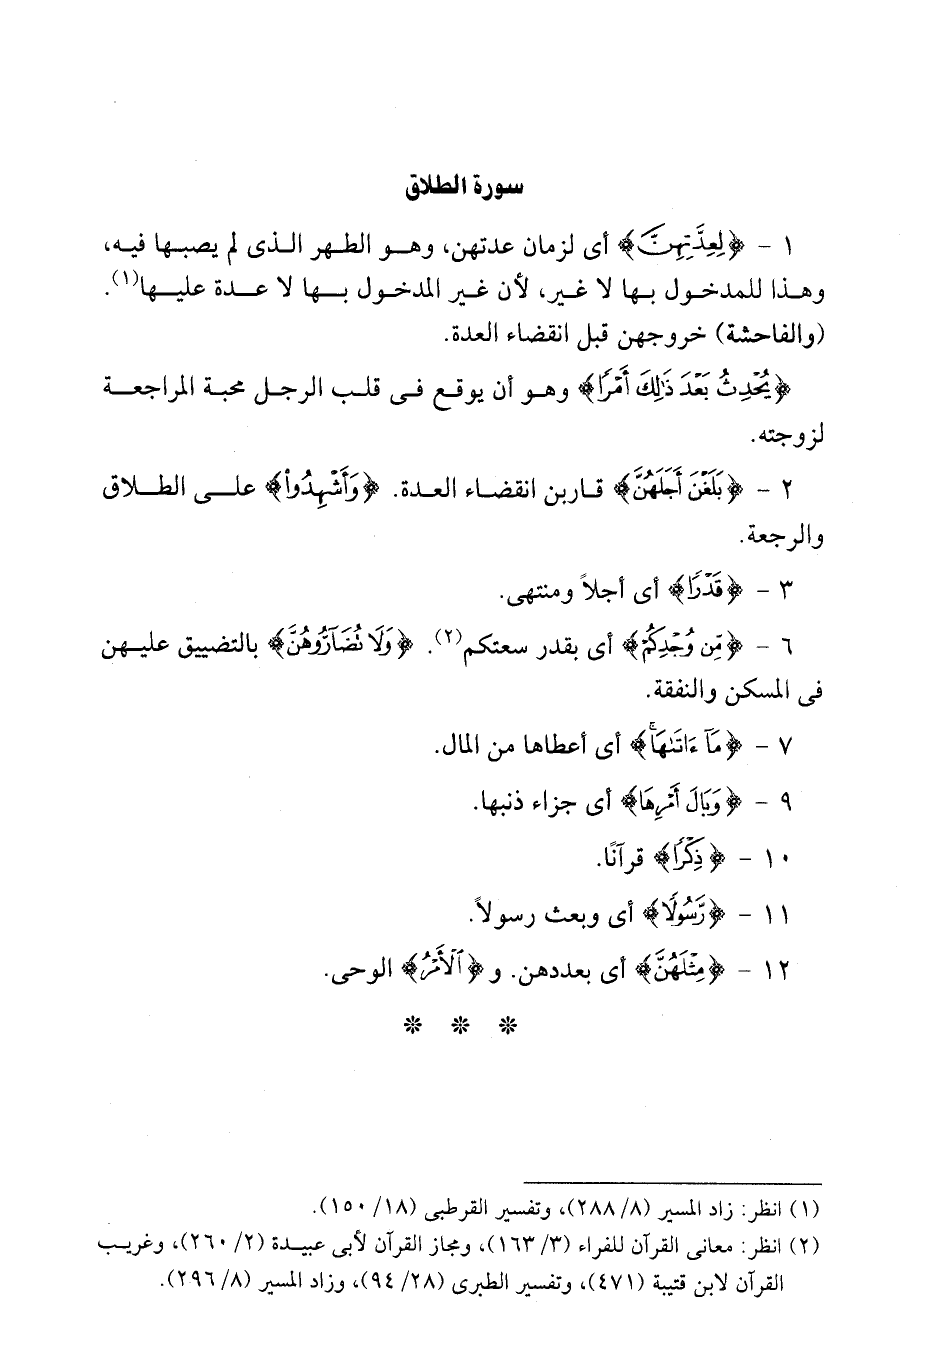 سورة الطلاق
١ - ﴿لِعِدَّتِهِنَّ﴾ أى لزمان عدتهن، وهـو الطـهر الـذى لم يصبـها فيـه،
وهـذا للمدخـول بـها لا غـير، لأن غير المدخول بـها لا عـدة عليـها(١).
(والفاحشة) خروجهن قبل انقضاء العدة.
﴿يُحْدِثُ بَعْدَ ذَٰلِكَ أَمْرًا﴾ وهـو أن يوقـع فـى قلـب الرجـل محبة المراجعـة
لزوجته.
٢ - ﴿بَلَغْنَ أَجَلَهُنَّ﴾ قـاربن انقضـاء العـدة. ﴿وَأَشْهِدُوا۟﴾ علـى الطـلاق
والرجعة.
٣ - ﴿قَدْرًا﴾ أى أجلاً ومنتهى.
٦ - ﴿مِّن وُجْدِكُمْ﴾ أى بقدر سعتكم(٢). ﴿وَلَا تُضَآرُّوهُنَّ﴾ بالتضييق عليـهن
فى المسكن والنفقة.
٧ - ﴿مَآ ءَاتَىٰهَا ۚ﴾ أى أعطاها من المال.
٩ - ﴿وَبَالَ أَمْرِهَا﴾ أى جزاء ذنبها.
١٠ - ﴿ذِكْرًا﴾ قرآنًا.
١١ - ﴿رَّسُولًا﴾ أى وبعث رسولاً.
١٢ - ﴿مِثْلَهُنَّ﴾ أى بعددهن. و﴿ٱلْأَمْرُ﴾ الوحى.
* * *
(١) انظر: زاد المسير (٨/ ٢٨٨)، وتفسير القرطبى (١٨/ ١٥٠).
(٢) انظر: معانى القرآن للفراء (٣/ ١٦٣)، ومجاز القرآن لأبى عبيـدة (٢/ ٢٦٠)، وغريـب
القرآن لابن قتيبة (٤٧١)، وتفسير الطبرى (٢٨/ ٩٤)، وزاد المسير (٨/ ٢٩٦).